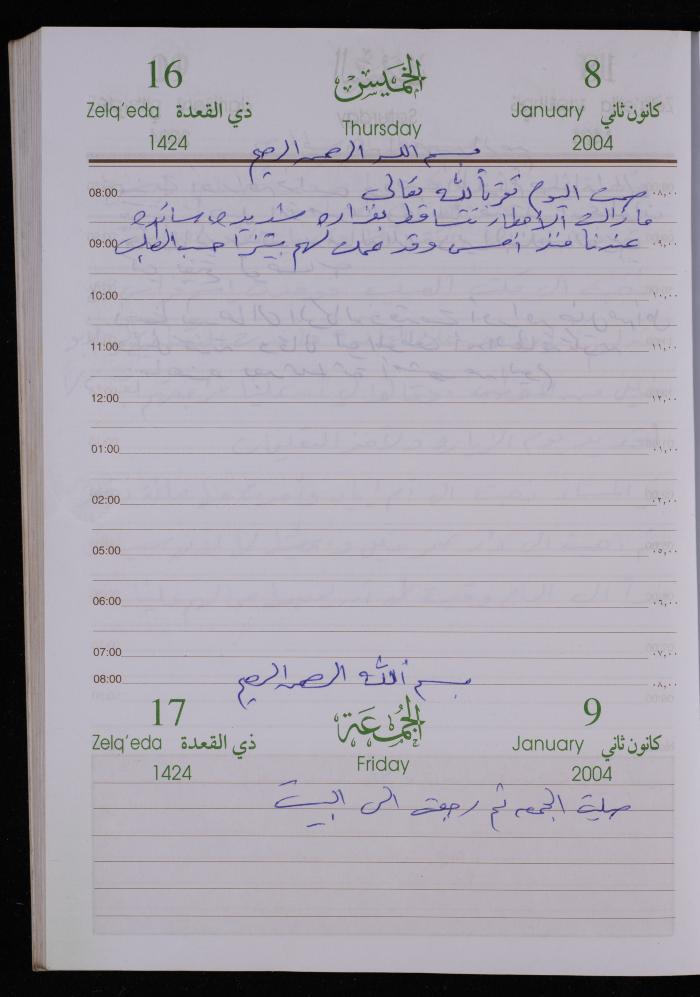 16 الخميس 8
Zelq'eda ذي القعدة Thursday January كانون ثاني
1424 2004
بسم الله الرحمن الرحيم
08:00 صمت اليوم تقرباً لله تعالى ٠٨,٠٠
مازالت الأمطار تتساقط بغزاره شديده
09:00 عندنا منذ أمس وقد عملت لهم بيتزا حسب الطلب ٠٩,٠٠
10:00 ١٠,٠٠
11:00 ١١,٠٠
12:00 ١٢,٠٠
01:00 ٠١,٠٠
02:00 ٠٢,٠٠
05:00 ٠٥,٠٠
06:00 ٠٦,٠٠
07:00 ٠٧,٠٠
08:00 بسم الله الرحمن الرحيم ٠٨,٠٠
17 الجمعة 9
Zelq'eda ذي القعدة Friday January كانون ثاني
1424 2004
صليت الجمعه ثم رجعت الى البيت